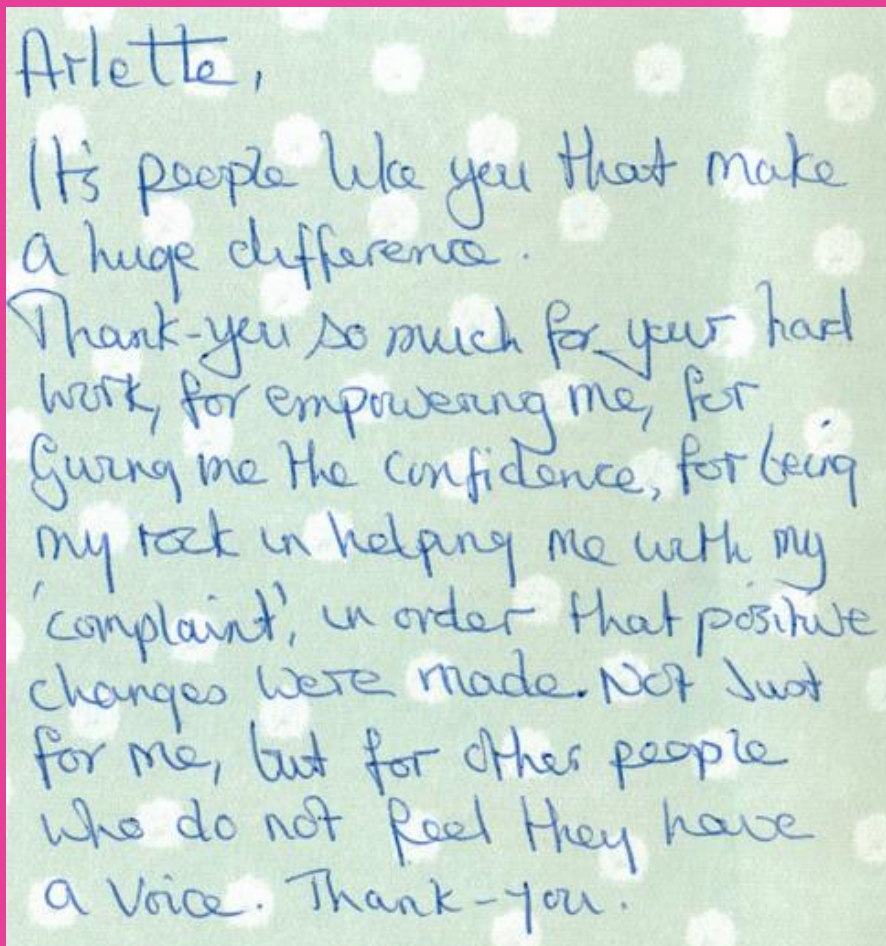 Arlette,
It's people like you that make
a huge difference.
Thank-you so much for your hard
work, for empowering me, for
giving me the confidence, for being
my rock in helping me with my
'complaint', in order that positive
changes were made. Not Just
for me, but for other people
who do not feel they have
a voice. Thank-you.